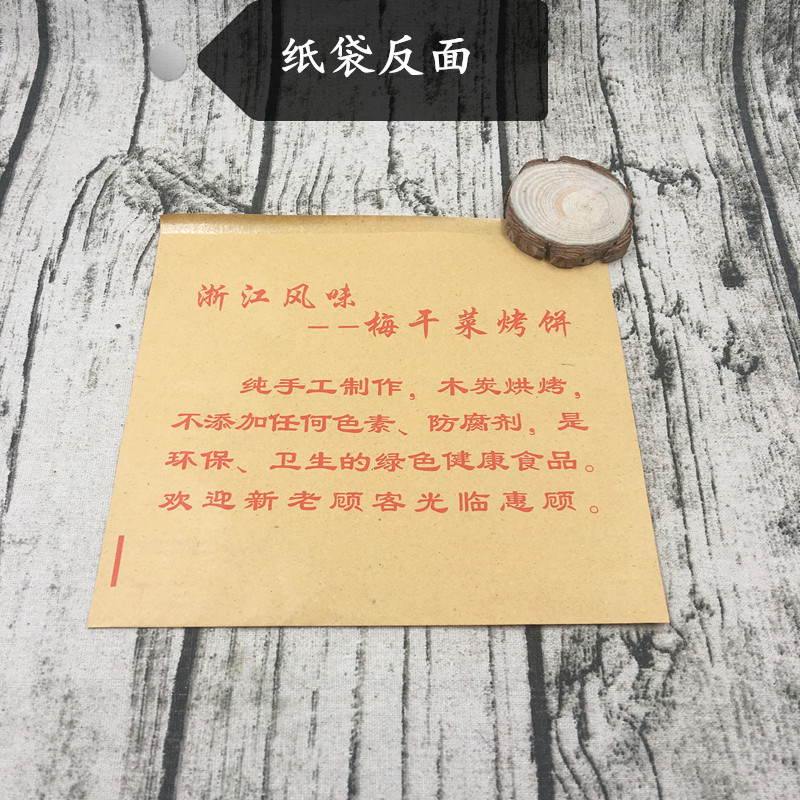 纸袋反面
浙江风味
——梅干菜烤饼
纯手工制作，木炭烘烤，
不添加任何色素、防腐剂，是
环保、卫生的绿色健康食品。
欢迎新老顾客光临惠顾。